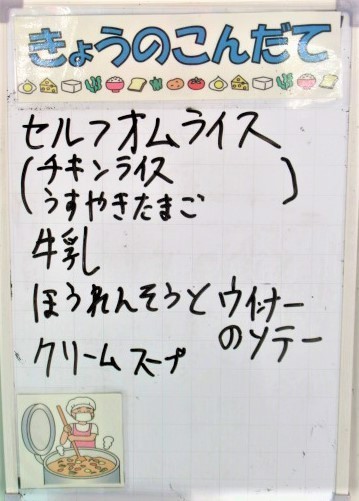 きょうのこんだて
セルフオムライス
(チキンライス
うすやきたまご)
牛乳
ほうれんそうとウインナー
のソテー
クリームスープ